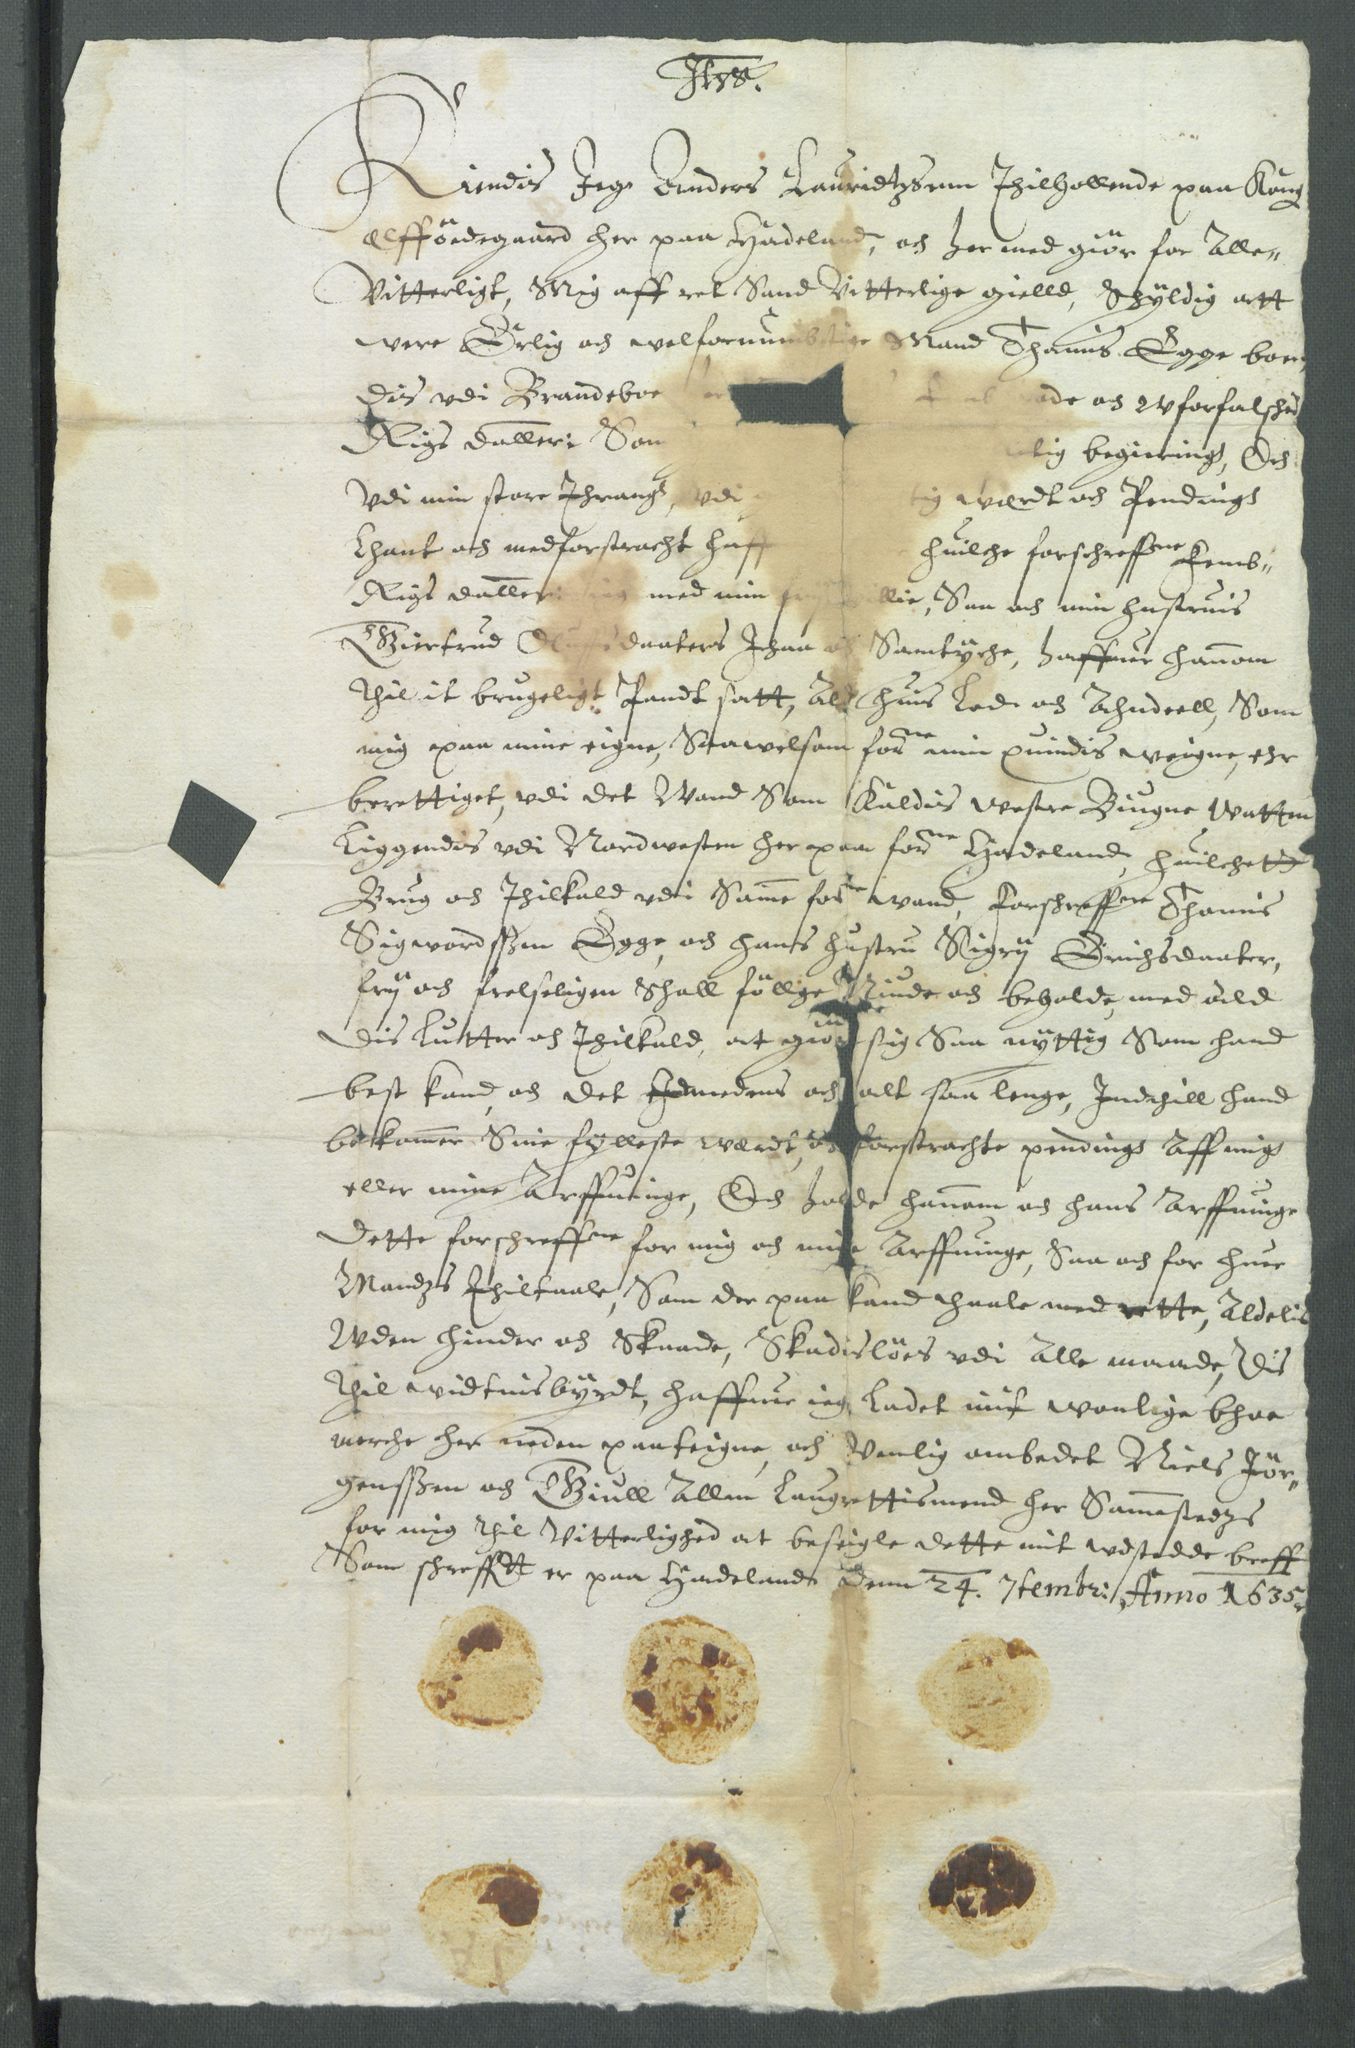 Ihs.
Kiendis Jeg Anders Lauridtzsenn Thilhollende paa Kong
Elfföedegaard her paa Hadeland, och her med giör for Alle
Vitterligt, Mig aff ret Sand Vitterlige gielld, Schyldig att
were Erlig och welfornumbstige Mand Thamis Egge boen
dis vdi Brandeboe och Wforfalsched
Rigs daller: Som begiering, Och
Vdi min store Thrang, vdi werdt och Pending
Lhant och medforstracht haff huilche forschreffne Femb
Rigs daller: ieg med min frj willie, Saa och min hustruis
Giertrud Olufsdaaters Jchaa och Samtyche, haffuer hannom
thil it brugeligt Pandt satt, Alt huis Lod och Anndeell, Som
mig paa mine eigne, Saawelsom forne min quindis weigne, ehr
berettiget, vdi det Wand Som Kaldis westre Biugne Watten
Liggendis vdi Nordwesten her paa forne Hadeland, huilchett
Brug och Thilkald vdi Same forne wand, Forschreffne Thamis
Sigwordssen Egge, och hans hustru Sigrij Erichsdaater,
frij och frelseligen Schall föllge Niude och beholde, med ald
dis Lutter och Thilkald, at giöre sig Saa nyttig Som hand
best kand, och det medens och alt saa lenge, Indthill hand
bekommer Sine fylleste werdt, och forstrachte pending Aff mig
eller mine Arffuinge, Och holde hannom och hans Arffuinge
dette forschreffne for mig och mine Arffuinge, Saa och for huer
Mandzs Thiltaale, Som der paa kand thaale med rette, Aldelis
Uden hinder och Skaade, Skadislöes vdi Alle maade, Dis
thil widtnisbyrdt, haffuer ieg Ladet mit wonlige boe
merche her neden paateigne, och Venlig ombedet Niels Jör
genssen och Giull Allm Laugrettismend her Sammestedzs
for mig thil Vitterlighed at beseigle dette mit wdstedde breff
Som schreffuit er paa Hadeland Denn 24. 7tembr: Anno 1635